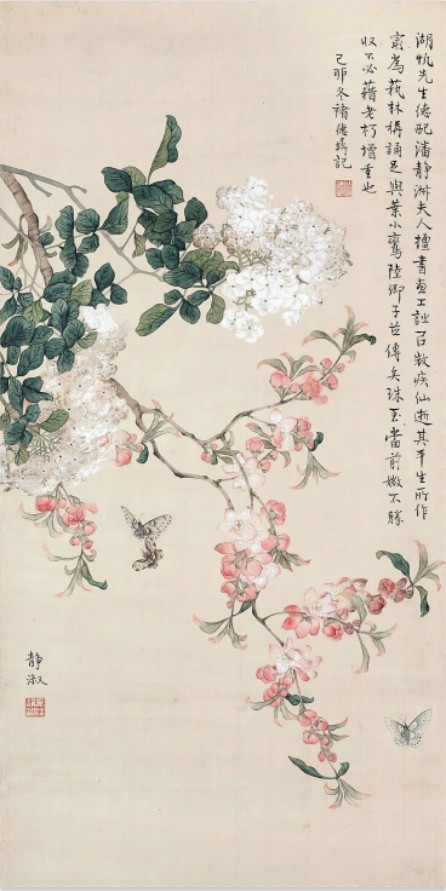 湖帆先生德配潘静淑夫人擅書画工詞召數疾仙逝其平生所作
寔為萟林稱誦足與葉小鸞陸卿子并傳矣珠玉當前媺不勝
収不必藉老朽增重也
己卯冬褚德彝記
静
淑